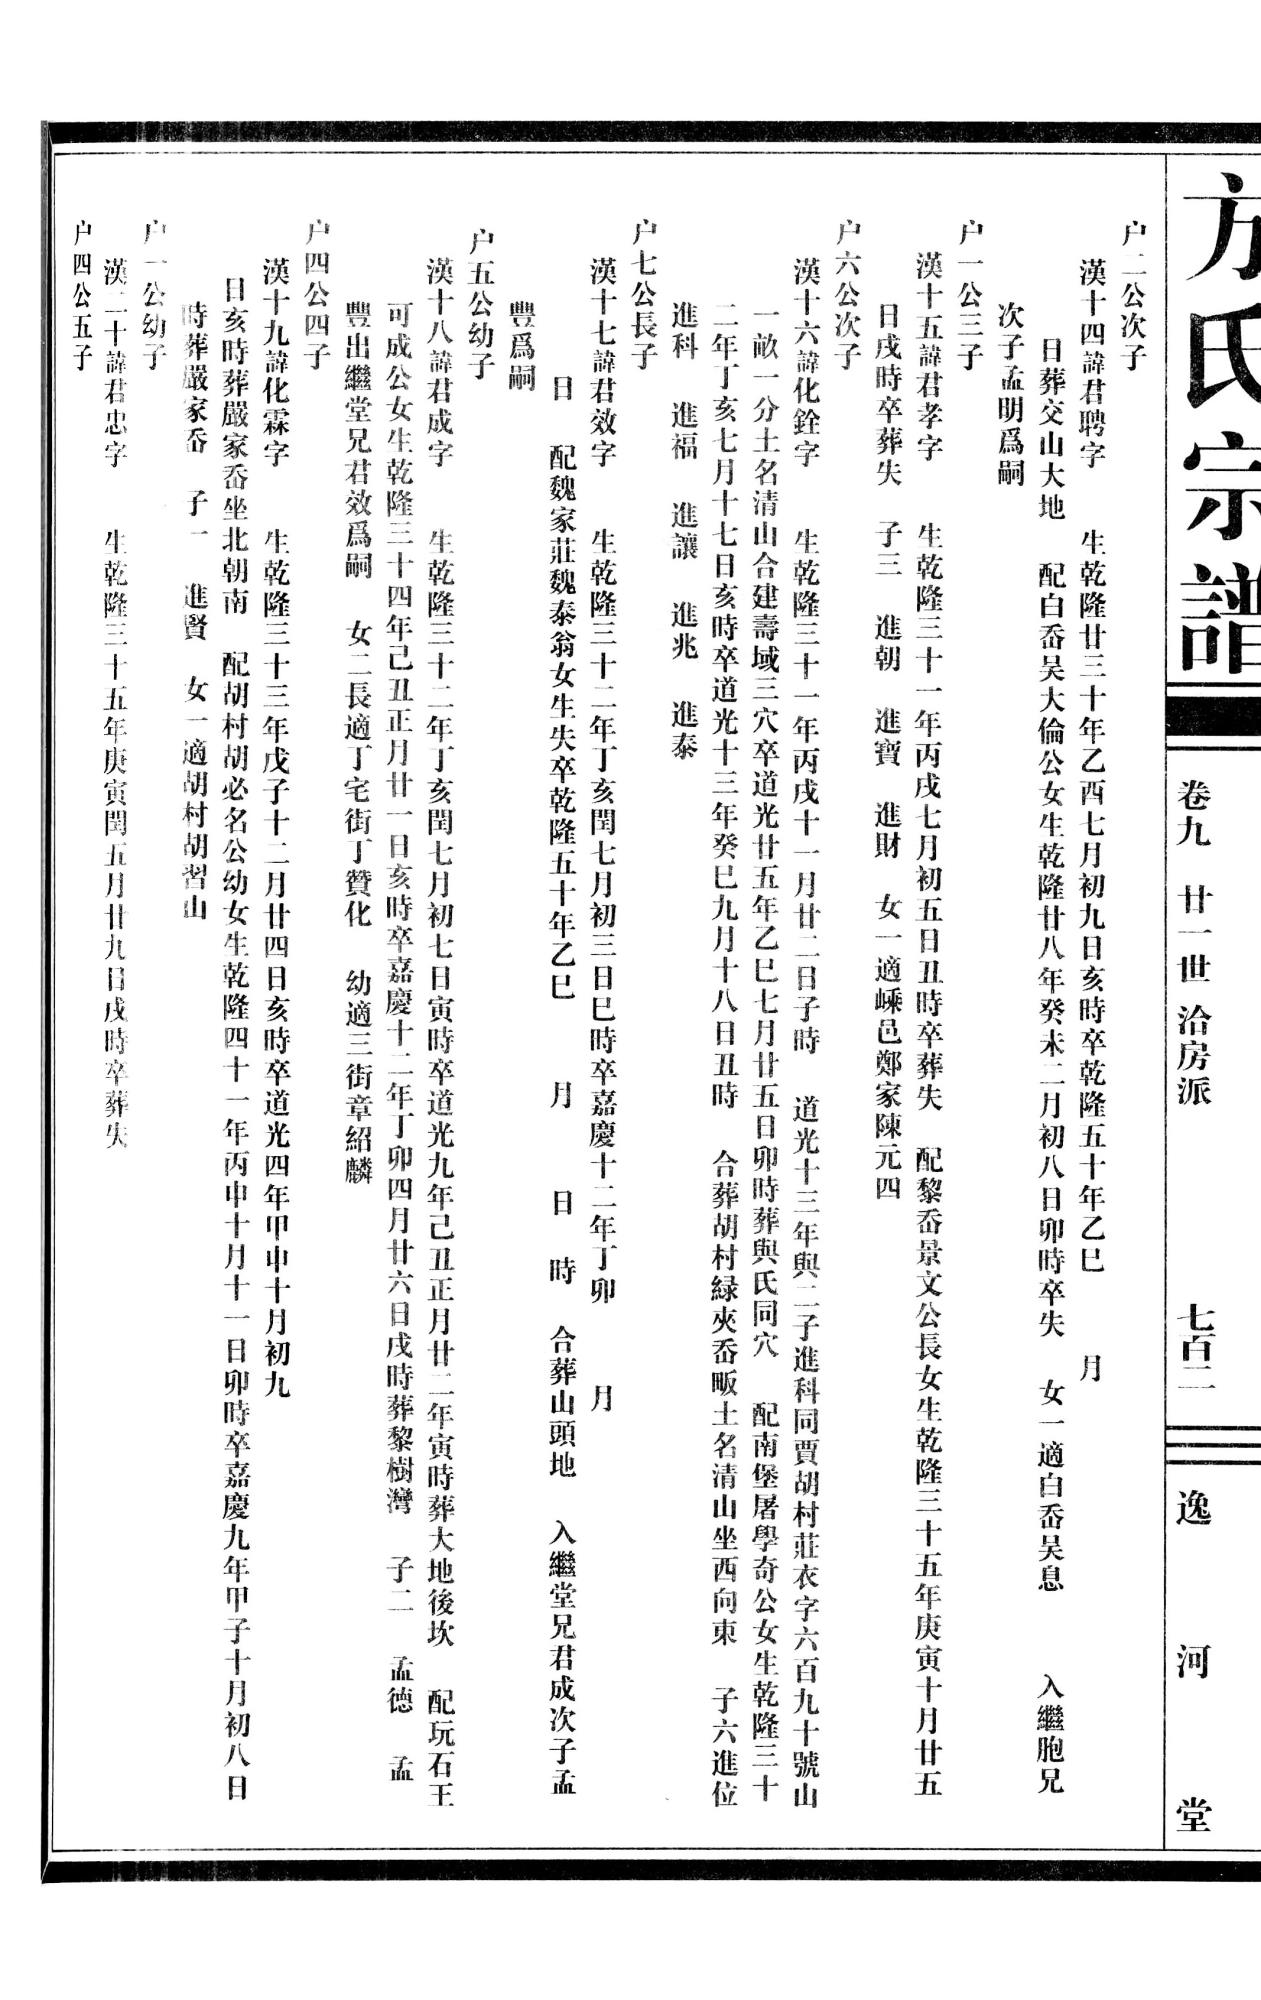 方氏宗譜
卷九 廿一世 洽房派 七百二
逸河堂
户二公次子
漢十四諱君聘字 生乾隆廿三十年乙酉七月初九日亥時卒乾隆五十年乙巳 月
日葬交山大地 配白岙吴大倫公女生乾隆廿八年癸未二月初八日卯時卒失 女一適白岙吴息 入繼胞兄
次子孟明爲嗣
户一公三子
漢十五諱君孝字 生乾隆三十一年丙戌七月初五日丑時卒葬失 配黎岙景文公長女生乾隆三十五年庚寅十月廿五
日戌時卒葬失 子三 進朝 進寶 進財 女一適嵊邑鄭家陳元四
户六公次子
漢十六諱化銓字 生乾隆三十一年丙戌十一月廿二日子時 道光十三年與二子進科同賈胡村莊衣字六百九十號山
一畝一分土名清山合建壽域三穴卒道光廿五年乙巳七月廿五日卯時葬與氏同穴 配南堡屠學奇公女生乾隆三十
二年丁亥七月十七日亥時卒道光十三年癸巳九月十八日丑時 合葬胡村緑夾岙畈土名清山坐西向東 子六進位
進科 進福 進讓 進兆 進泰
户七公長子
漢十七諱君效字 生乾隆三十二年丁亥閏七月初三日巳時卒嘉慶十二年丁卯 月
日 配魏家莊魏泰翁女生失卒乾隆五十年乙巳 月 日 時 合葬山頭地 入繼堂兄君成次子孟
豐爲嗣
户五公幼子
漢十八諱君成字 生乾隆三十二年丁亥閏七月初七日寅時卒道光九年己丑正月廿二年寅時葬大地後坎 配玩石王
可成公女生乾隆三十四年己丑正月廿一日亥時卒嘉慶十二年丁卯四月廿六日戌時葬黎樹灣 子二 孟德 孟
豐出繼堂兄君效爲嗣 女二長適丁宅街丁贊化 幼適三街章紹麟
户四公四子
漢十九諱化霖字 生乾隆三十三年戊子十二月廿四日亥時卒道光四年甲申十月初九
日亥時葬嚴家岙坐北朝南 配胡村胡必名公幼女生乾隆四十一年丙申十月十一日卯時卒嘉慶九年甲子十月初八日
時葬嚴家岙 子一 進賢 女一適胡村胡習山
户一公幼子
漢二十諱君忠字 生乾隆三十五年庚寅閏五月廿九日戌時卒葬失
户四公五子